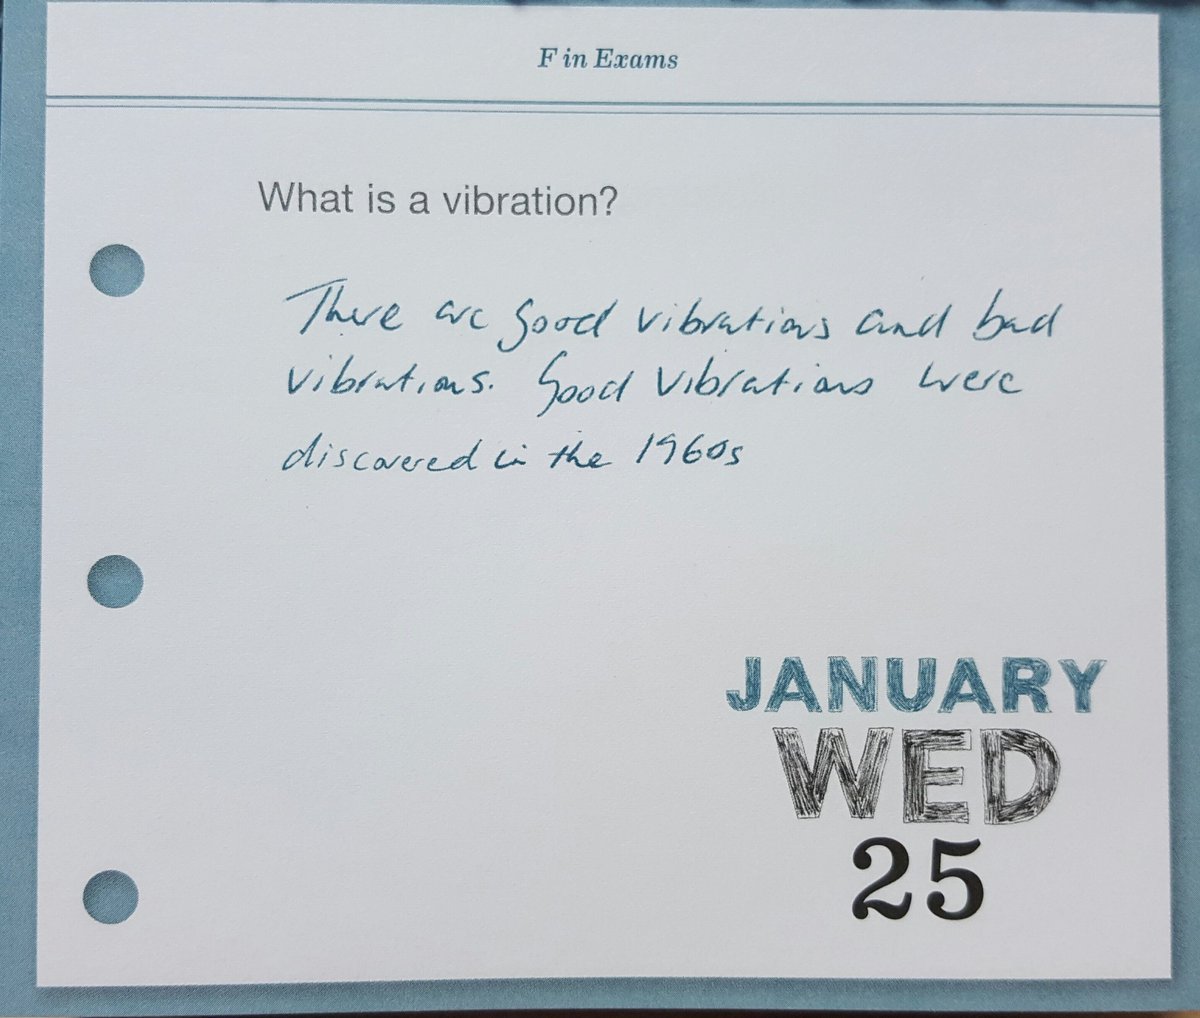 F in Exams
What is a vibration?
There are good vibrations and bad
vibrations. Good vibrations were
discovered in the 1960s
JANUARY
WED
25